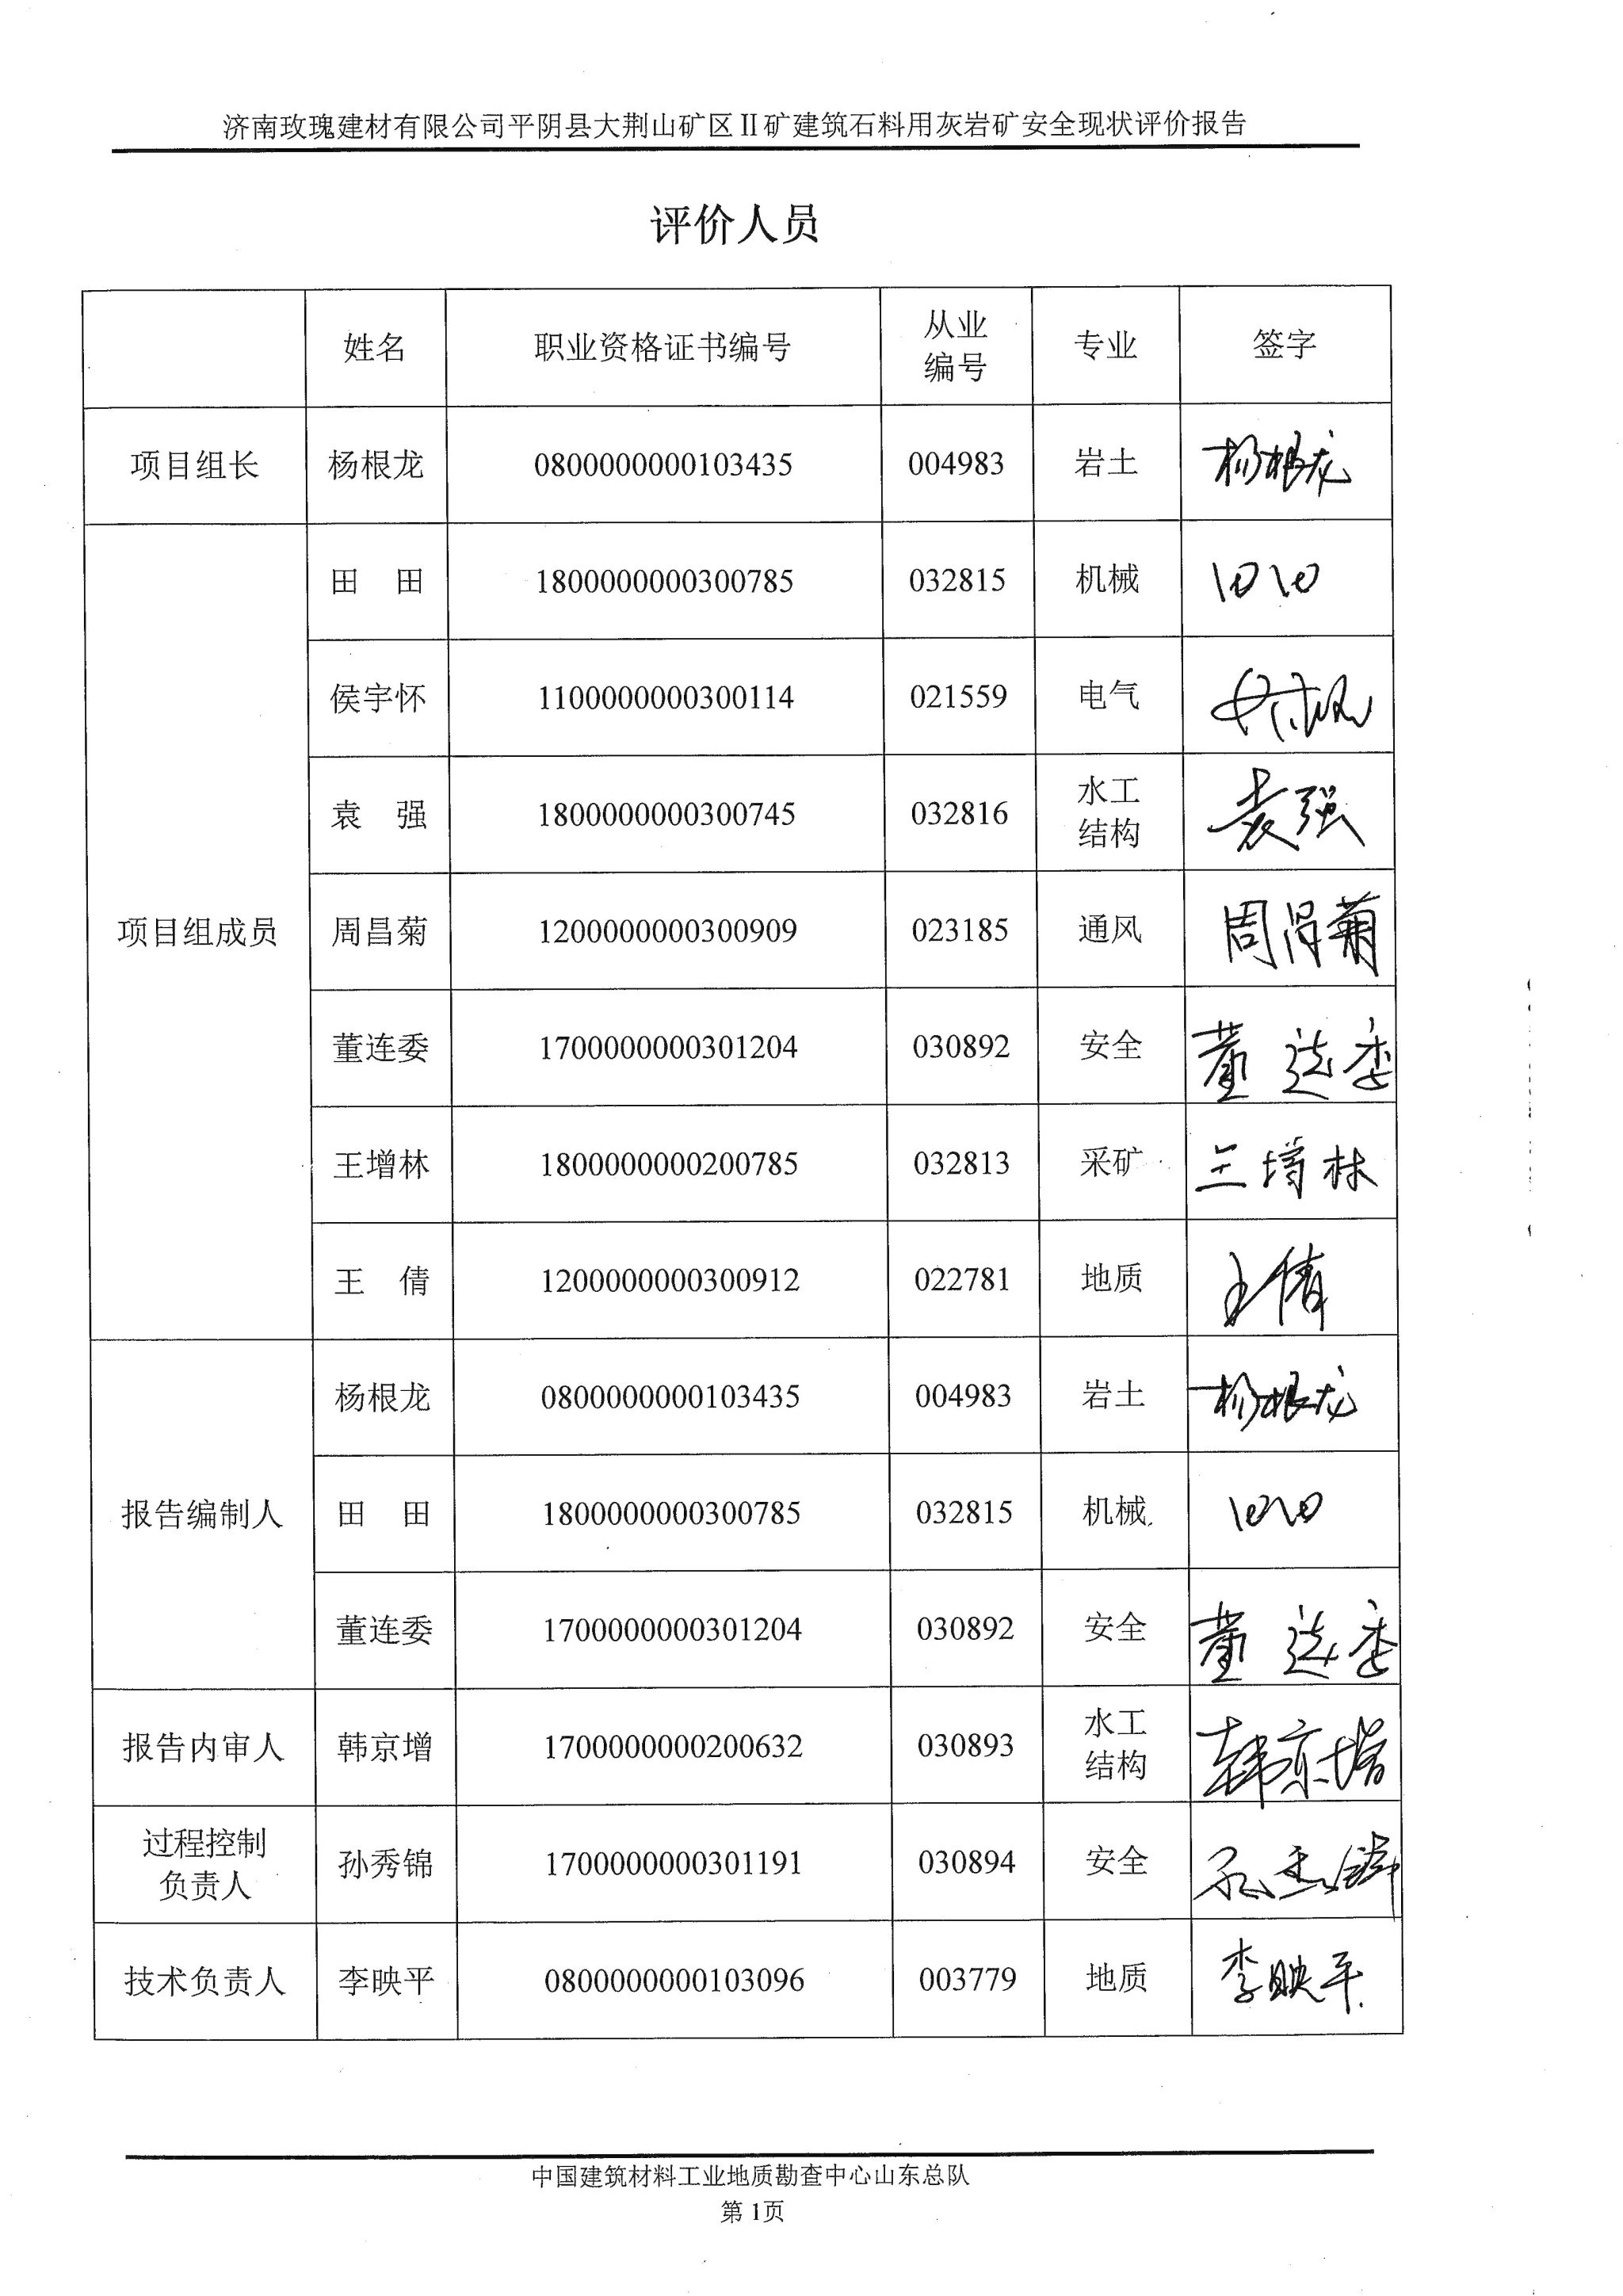 济南玫瑰建材有限公司平阴县大荆山矿区II矿建筑石料用灰岩矿安全现状评价报告
评价人员
姓名 职业资格证书编号 从业编号 专业 签字
项目组长 杨根龙 0800000000103435 004983 岩土 杨根龙
项目组成员 田 田 1800000000300785 032815 机械 田田
侯宇怀 1100000000300114 021559 电气
袁 强 1800000000300745 032816 水工结构 袁强
周昌菊 1200000000300909 023185 通风 周昌菊
董连委 1700000000301204 030892 安全 董连委
王增林 1800000000200785 032813 采矿 王增林
王 倩 1200000000300912 022781 地质 王倩
报告编制人 杨根龙 0800000000103435 004983 岩土 杨根龙
田 田 1800000000300785 032815 机械 田田
董连委 1700000000301204 030892 安全 董连委
报告内审人 韩京增 1700000000200632 030893 水工结构 韩京增
过程控制负责人 孙秀锦 1700000000301191 030894 安全 孙秀锦
技术负责人 李映平 0800000000103096 003779 地质 李映平
中国建筑材料工业地质勘查中心山东总队
第 1页